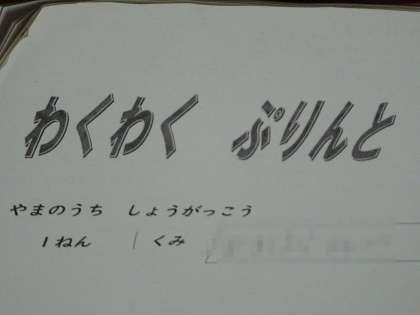 わくわく ぷりんと
やまのうち しょうがっこう
1ねん 1くみ